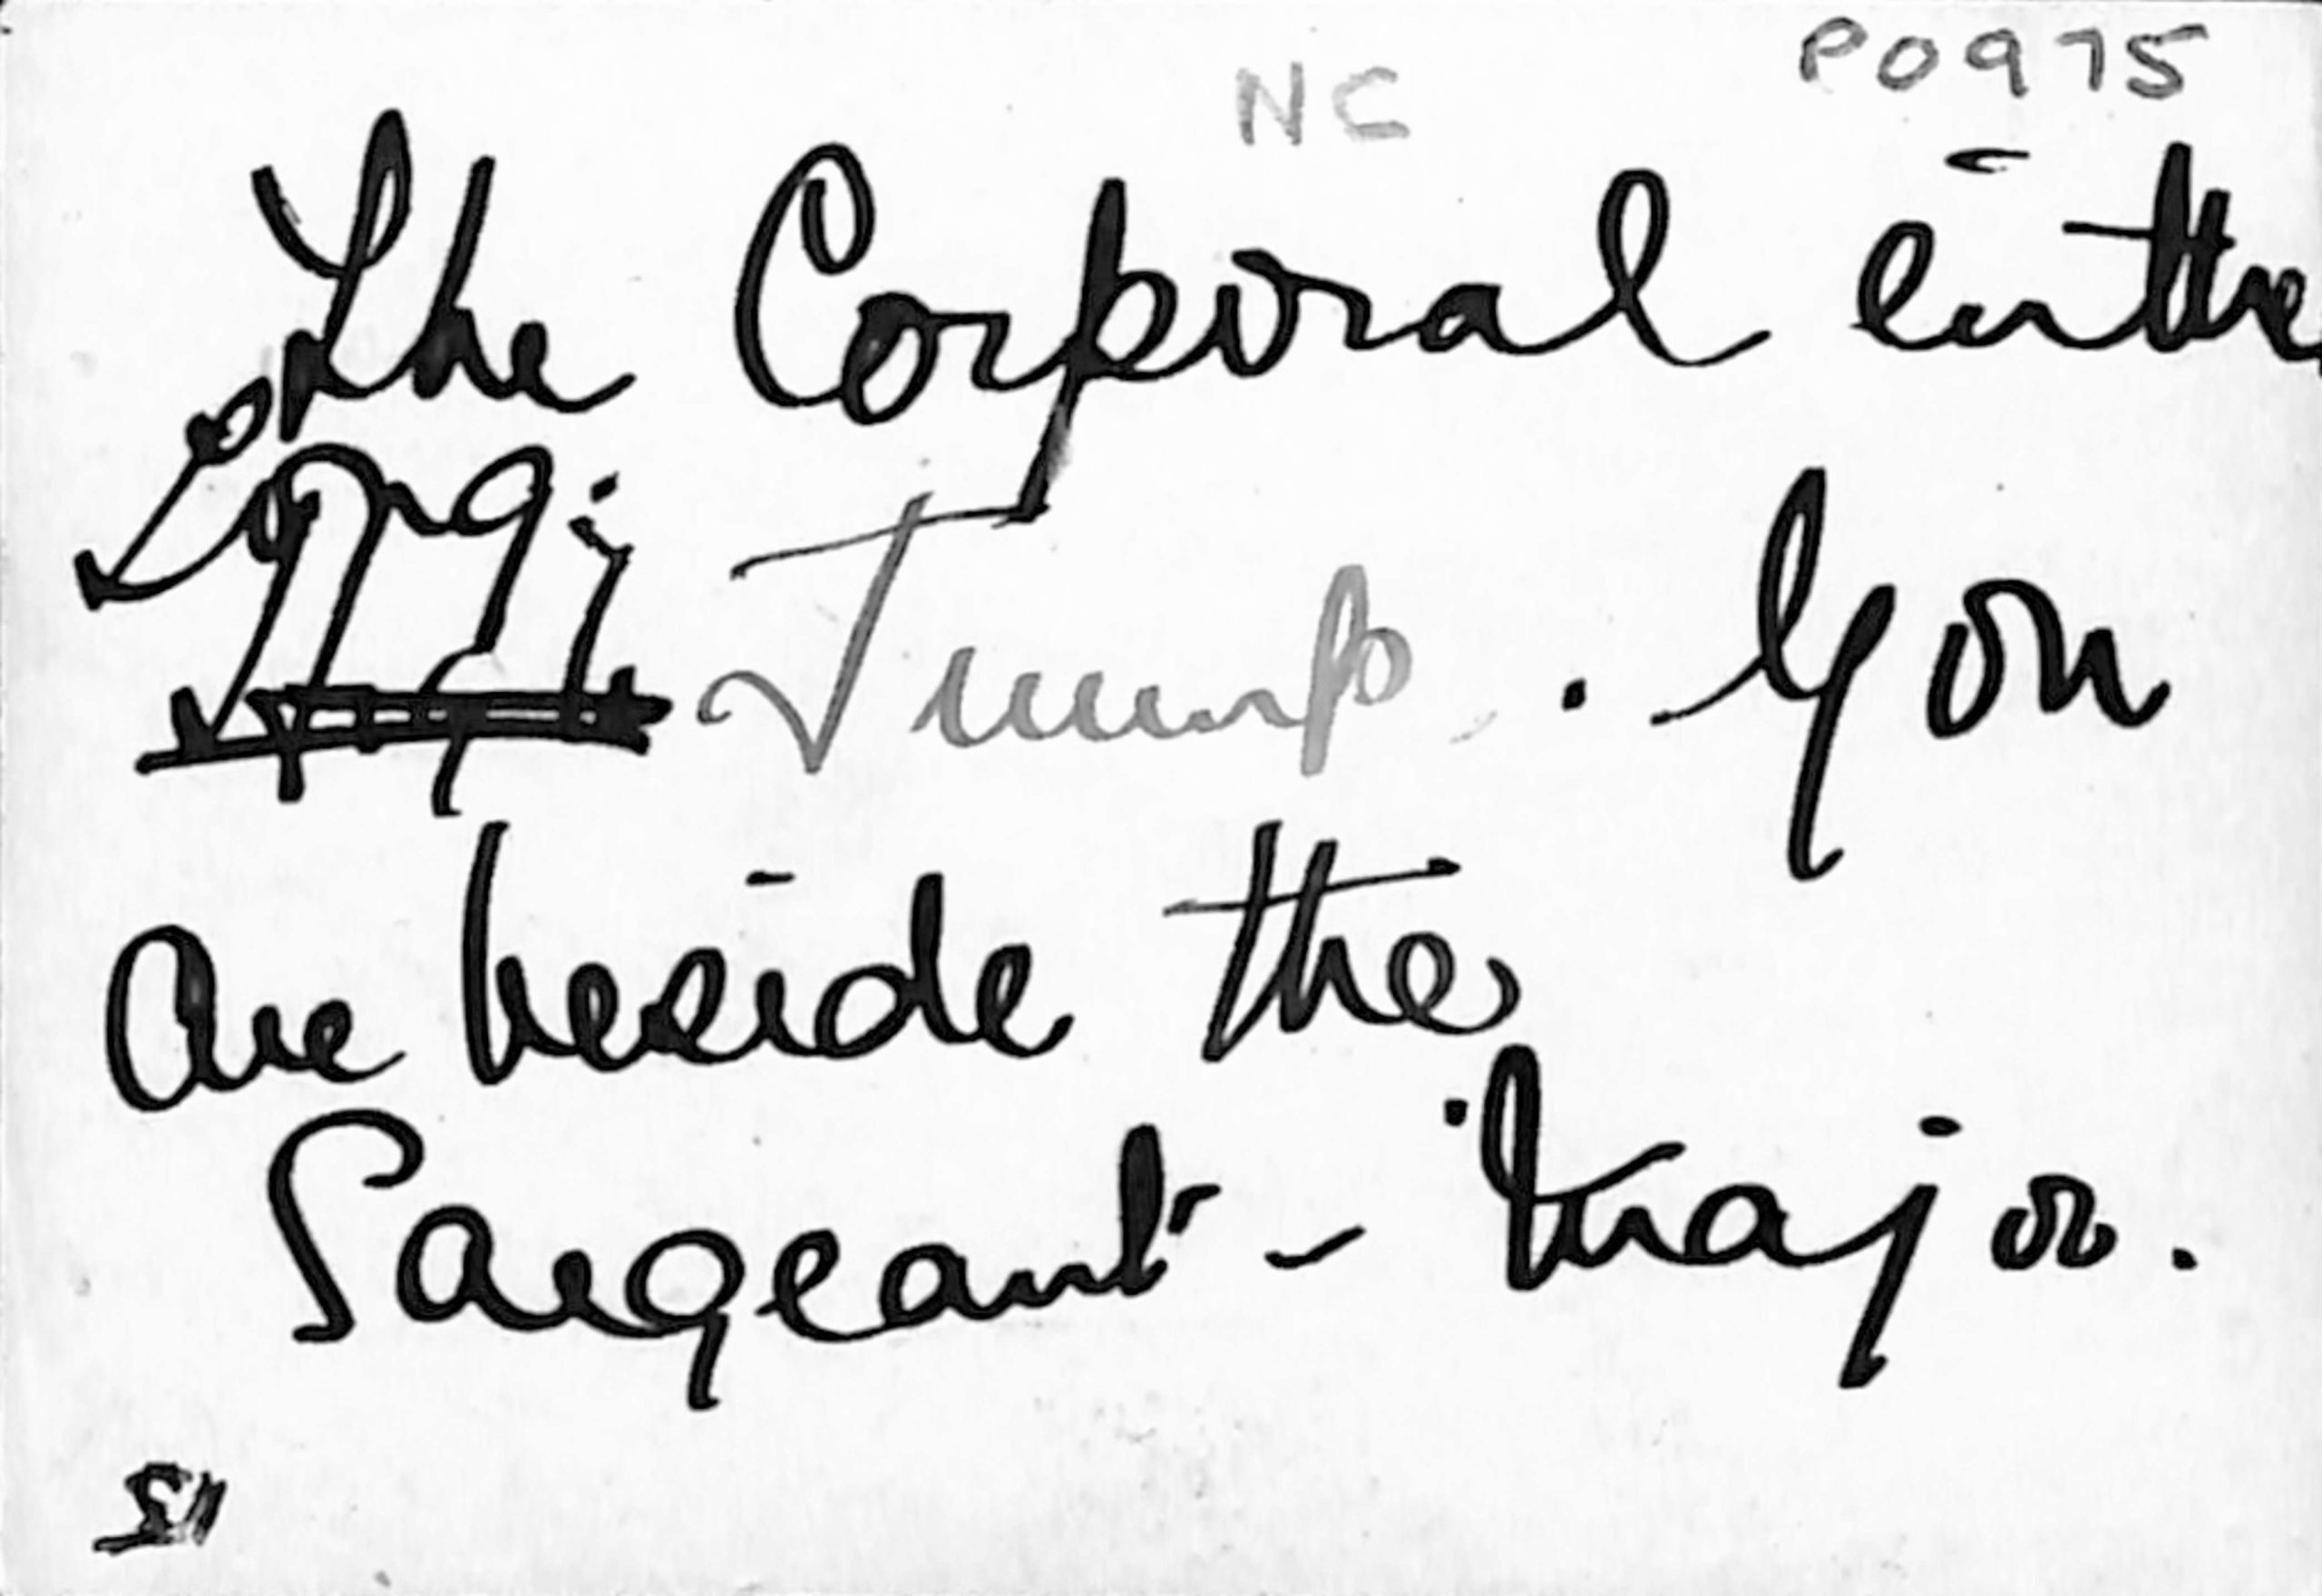 NC P0975
The Corporal in the
Long Jump. You
are beside the
Sargeant-Major.